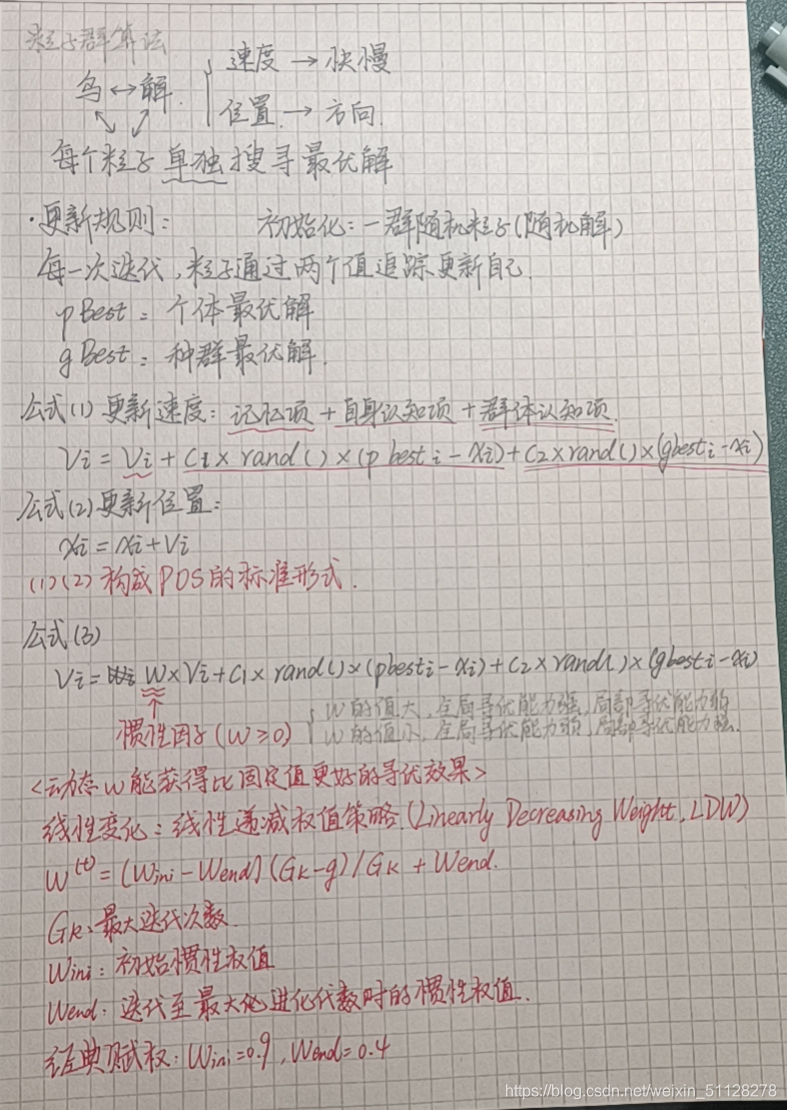 粒子群算法
鸟↔解 速度→快慢
位置→方向
每个粒子单独搜寻最优解
·更新规则: 初始化:一群随机粒子(随机解)
每一次迭代,粒子通过两个值追踪更新自己.
pBest:个体最优解
gBest:种群最优解.
公式(1)更新速度:记忆项+自身认知项+群体认知项.
Vi=Vi+C1×rand()×(pbesti-xi)+C2×rand()×(gbesti-xi)
公式(2)更新位置:
xi=xi+Vi
(1)(2)构成POS的标准形式.
公式(3)
Vi=W×Vi+C1×rand()×(pbesti-xi)+C2×rand()×(gbesti-xi)
W的值大,全局寻优能力强,局部寻优能力弱
惯性因子(W≥0) W的值小,全局寻优能力弱,局部寻优能力强.
<动态w能获得比固定值更好的寻优效果>
线性变化:线性递减权值策略(Linearly Decreasing Weight,LDW)
W(t)=(Wini-Wend)(GK-g)/GK+Wend.
GK:最大迭代次数
Wini:初始惯性权值
Wend:迭代至最大化进化代数时的惯性权值.
经典赋权:Wini=0.9,Wend=0.4
https://blog.csdn.net/weixin_51128278